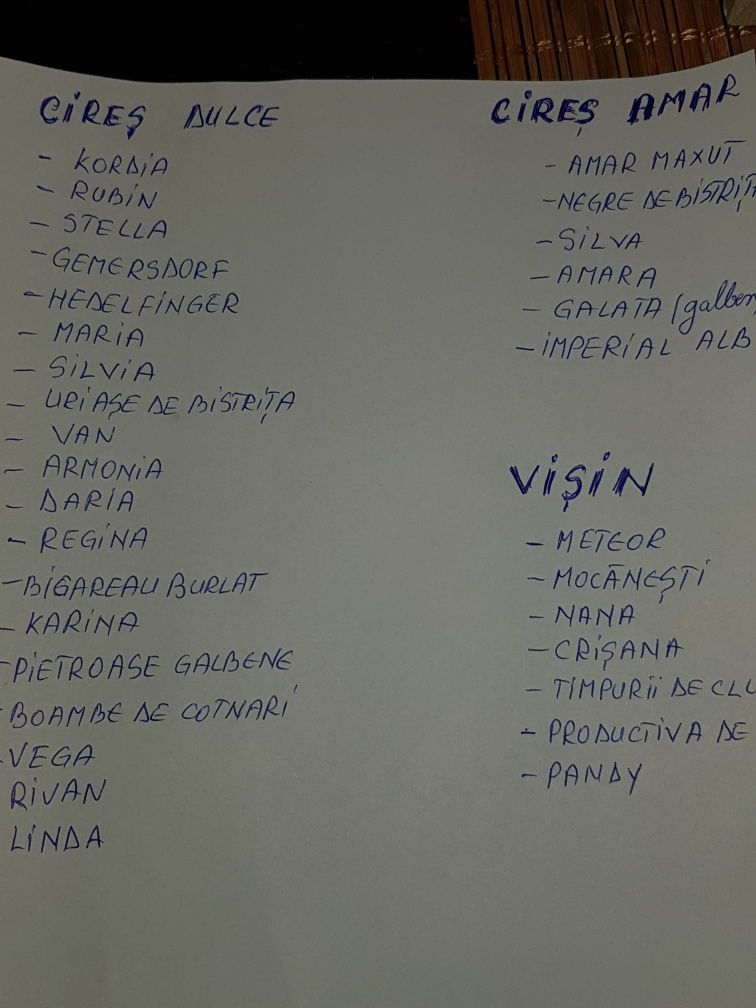 CIREȘ DULCE
- KORDIA
- RUBIN
- STELLA
- GEMERSDORF
- HEDELFINGER
- MARIA
- SILVIA
- URIAȘE DE BISTRIȚA
- VAN
- ARMONIA
- DARIA
- REGINA
- BIGAREAU BURLAT
- KARINA
- PIETROASE GALBENE
- BOAMBE DE COTNARI
- VEGA
RIVAN
LINDA
CIREȘ AMAR
- AMAR MAXUT
- NEGRE DE BISTRIȚ
- SILVA
- AMARA
- GALATA (galben
- IMPERIAL ALB
VIȘIN
- METEOR
- MOCĂNEȘTI
- NANA
- CRIȘANA
- TIMPURII DE CLU
- PRODUCTIVA DE
- PANDY